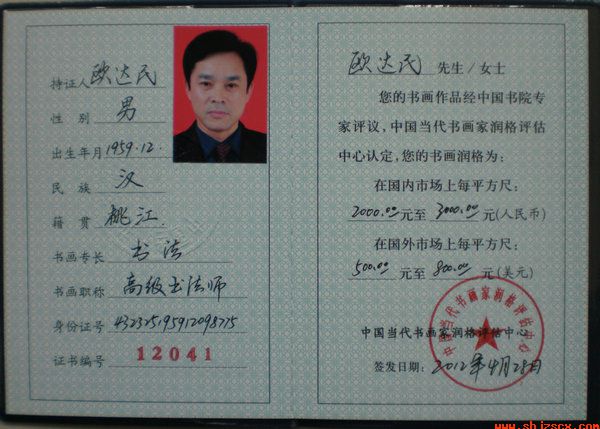 持证人 欧达民
性 别 男
出生年月 1959.12.
民 族 汉
籍 贯 桃江.
书画专长 书法
书画职称 高级书法师
身份证号 432325195912098775
证书编号 12041
欧达民 先生/女士
您的书画作品经中国书院专
家评议，中国当代书画家润格评估
中心认定，您的书画润格为：
在国内市场上每平方尺：
2000.00元至 3000.00元(人民币)
在国外市场上每平方尺：
500.00元至 800.00元(美元)
中国当代书画家润格评估中心
中国当代书画家润格评估中心
签发日期：2012年4月28日
www.shjzscx.com